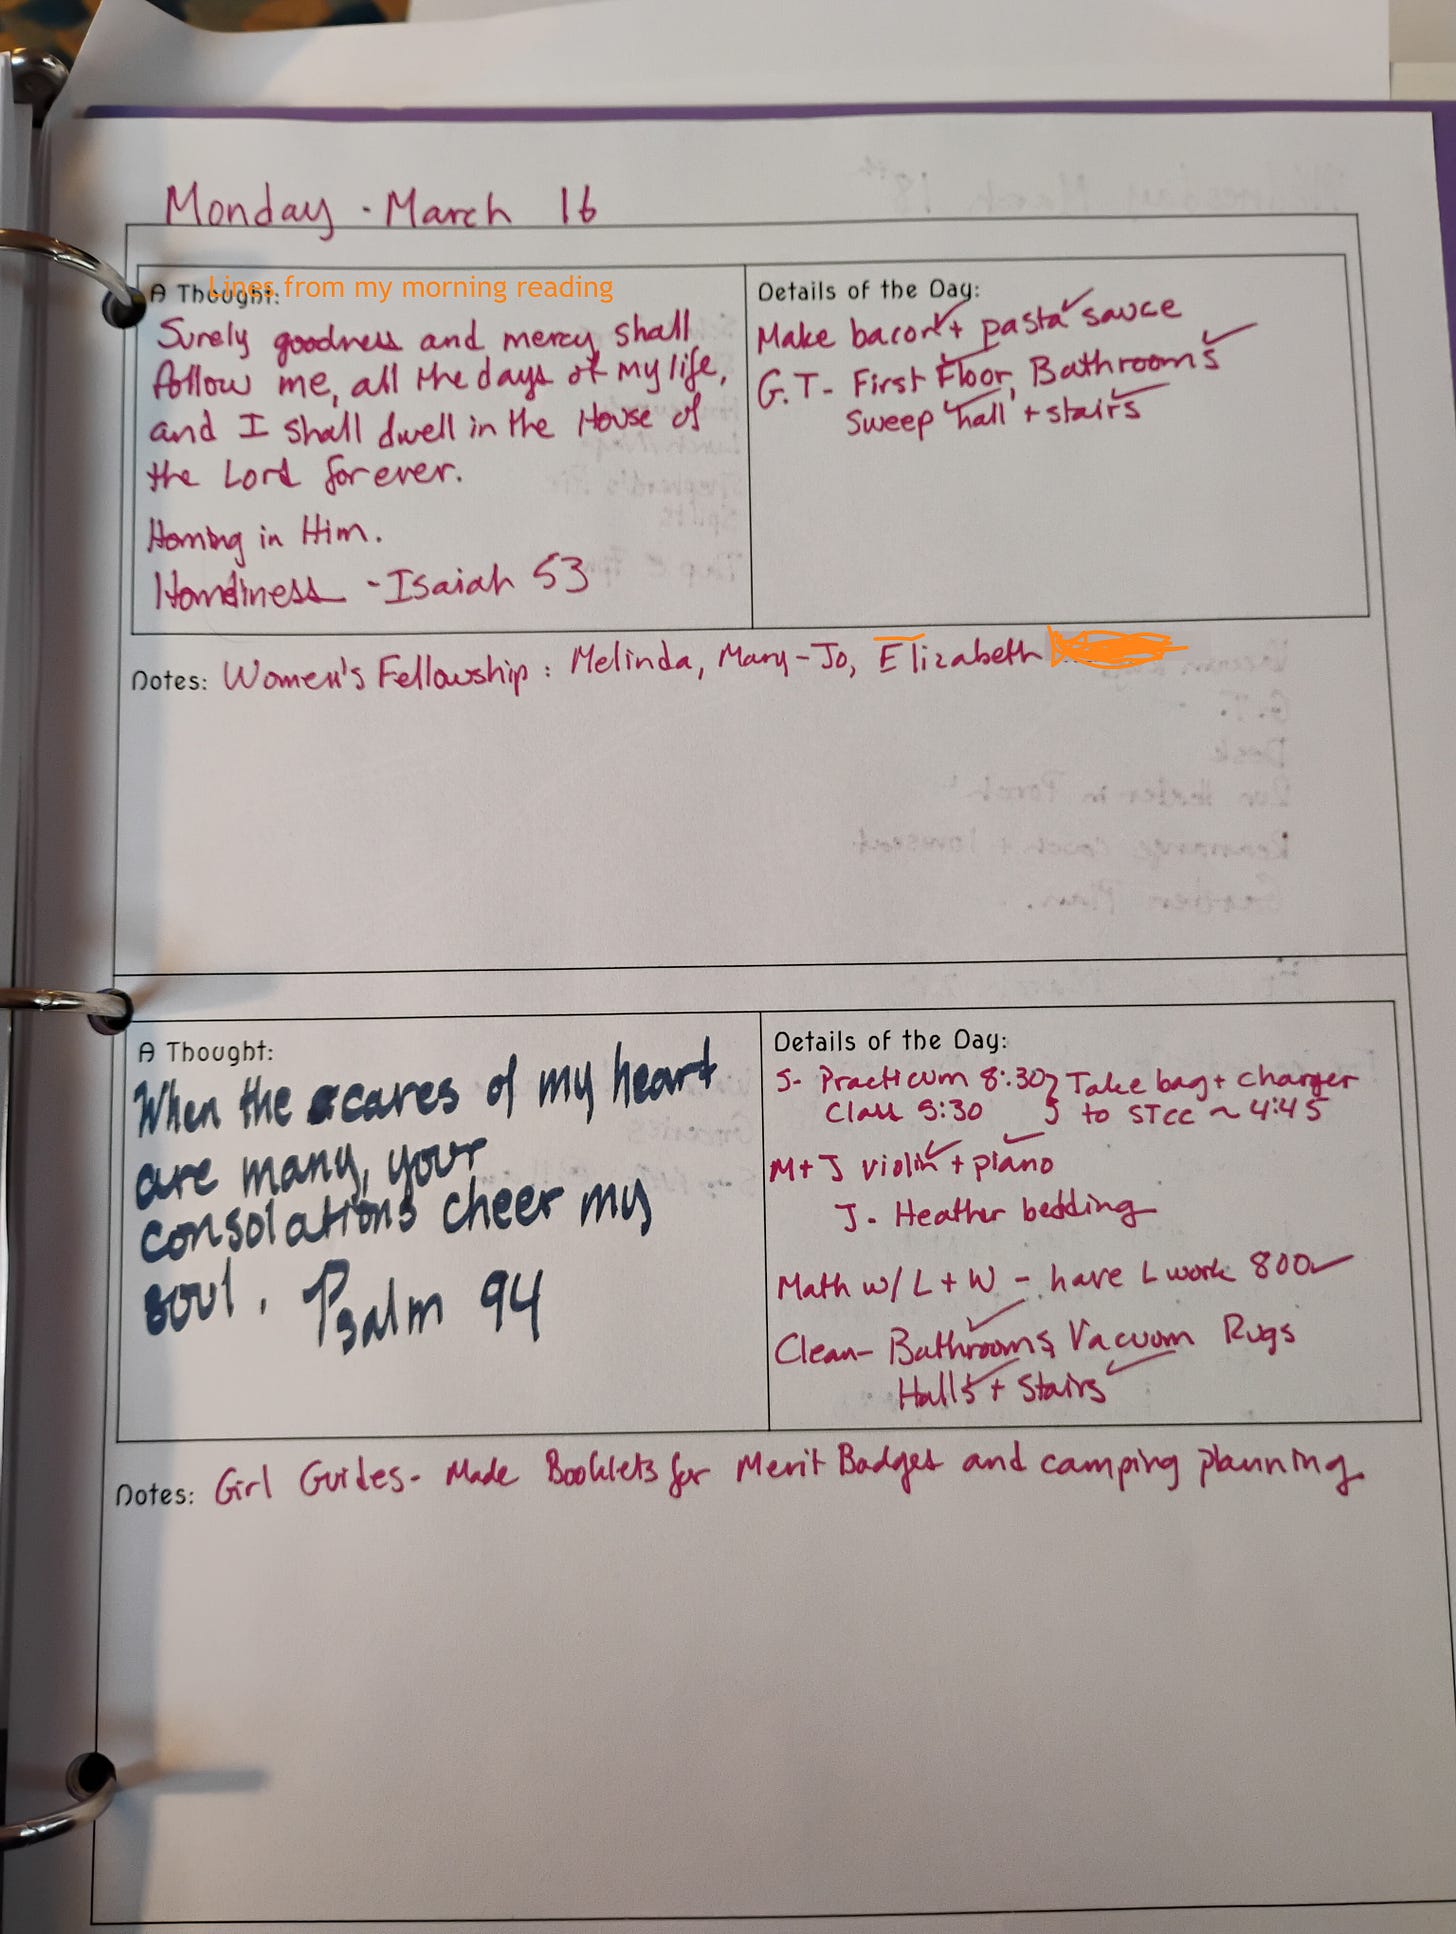 Monday - March 16
A Thought:
Lines from my morning reading
Surely goodness and mercy shall
follow me, all the days of my life,
and I shall dwell in the House of
the Lord forever.
Homing in Him.
- Isaiah 53
Details of the Day:
Make bacon + pasta sauce
G.T- First Floor, Bathrooms
Sweep hall + stairs
Notes: Women's Fellowship: Melinda, Mary-Jo, Elizabeth
A Thought:
When the cares of my heart
are many, your
consolations cheer my
soul. Psalm 94
Details of the Day:
S- Practicum 8:30 } Take bag + charger
Class 5:30 } to STCC ~ 4:45
M+J violin + piano
J- Heather bedding
Math w/ L + W - have L work 800
Clean- Bathrooms, Vacuum Rugs
Halls + Stairs
Notes: Girl Guides- Made Booklets for Merit Badges and camping planning.